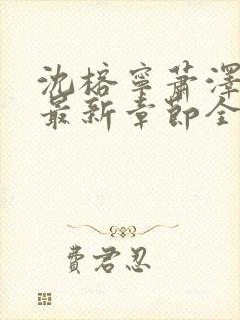 沈榕寧蕭澤
最新章節全
費君忍